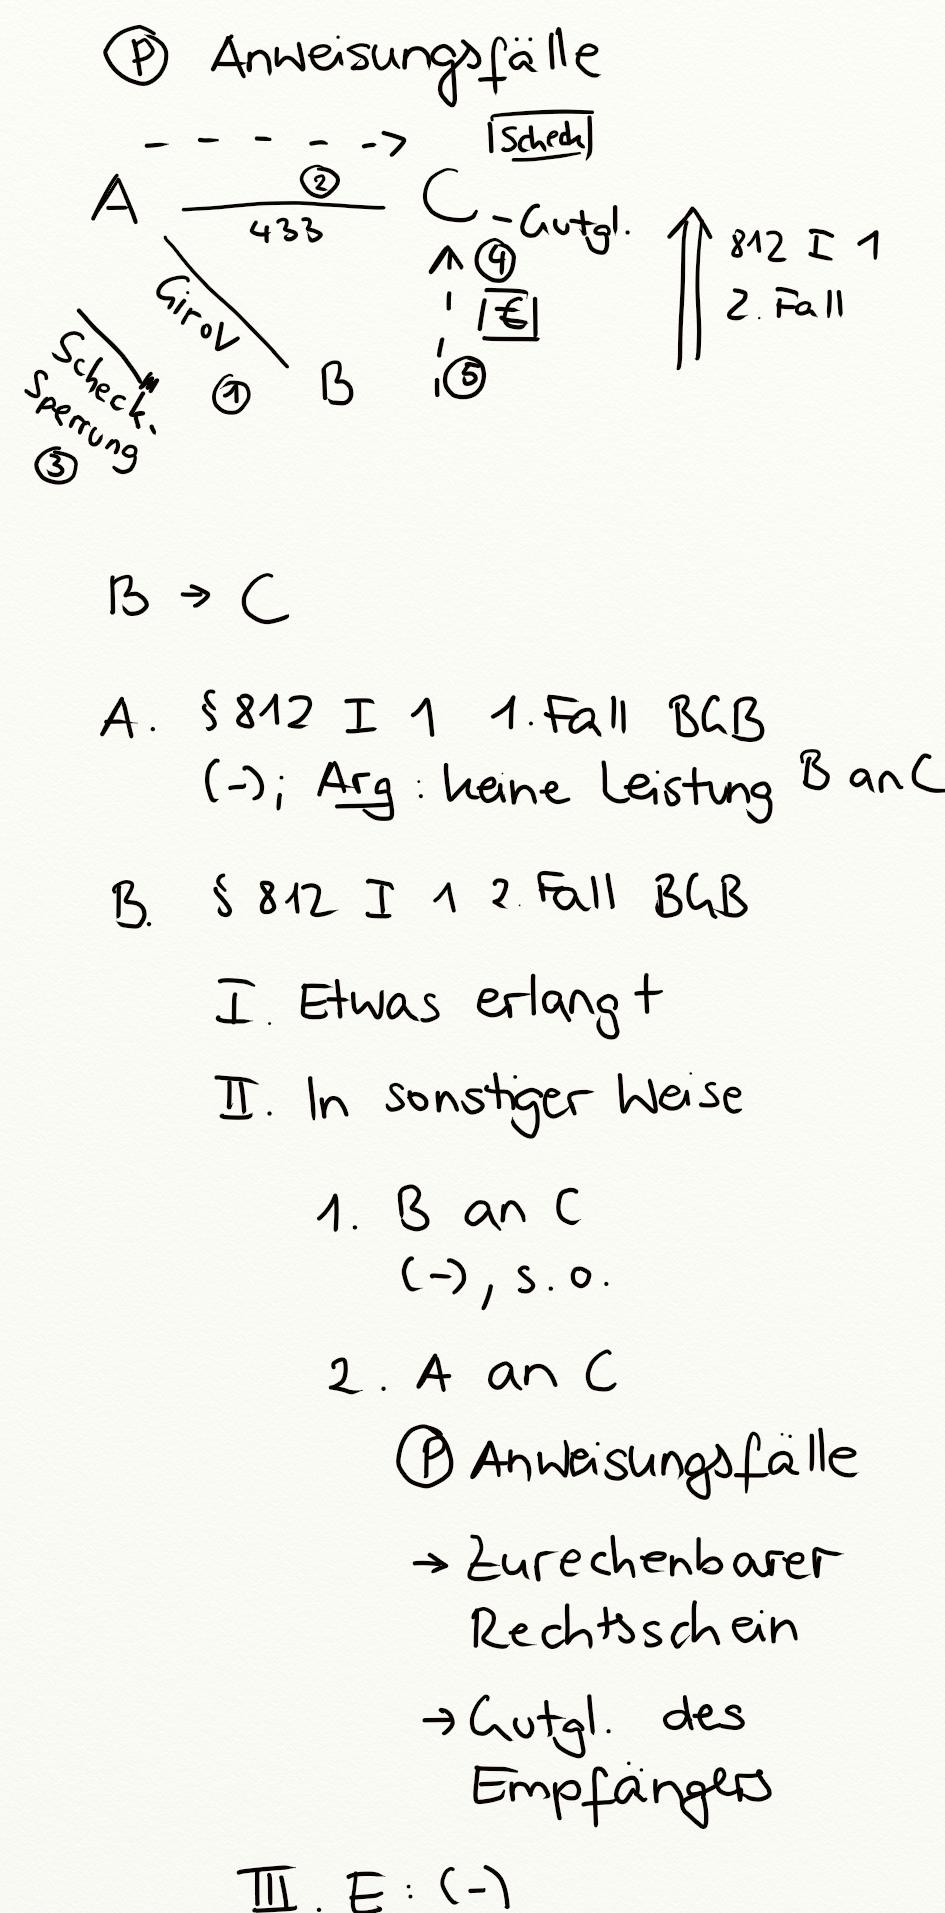 Ⓟ Anweisungsfälle
Scheck
A ② C
433
- Gutgl.
④
€
⑤
812 I 1
2. Fall
GiroV
① B
Scheck.
Sperrung
③
B → C
A. § 812 I 1 1. Fall BGB
(-); Arg: keine Leistung B an C
B. § 812 I 1 2. Fall BGB
I. Etwas erlangt
II. In sonstiger Weise
1. B an C
(-), s. o.
2. A an C
Ⓟ Anweisungsfälle
→ Zurechenbarer
Rechtsschein
→ Gutgl. des
Empfängers
III. E: (-)